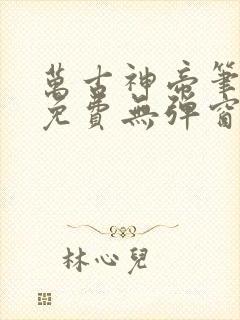 萬古神帝筆
免費無彈窗
林心兒